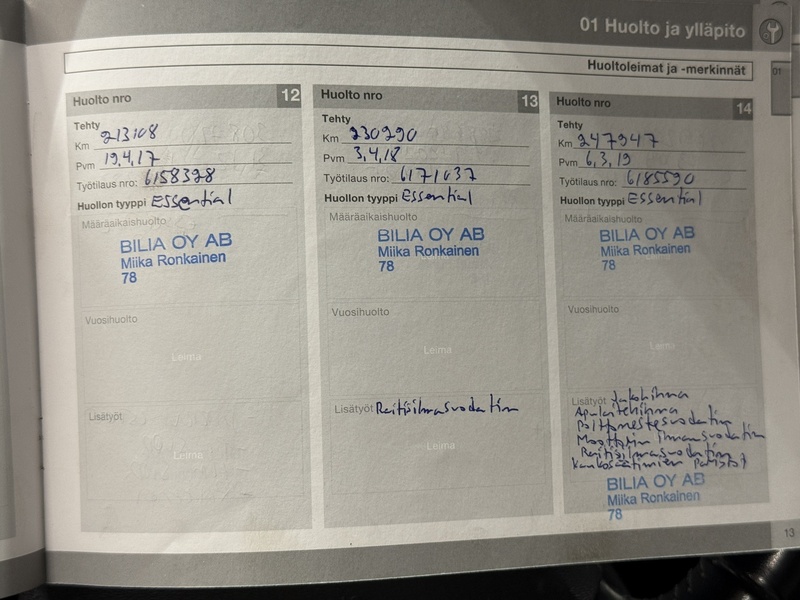 01 Huolto ja ylläpito
Huoltoleimat ja -merkinnät
01
Huolto nro 12
Tehty
Km 213108
Pvm 19,4,17
Työtilaus nro: 6158398
Huollon tyyppi Essential
Määräaikaishuolto
BILIA OY AB
Miika Ronkainen
78
Vuosihuolto
Leima
Lisätyöt
Leima
Huolto nro 13
Tehty
Km 230290
Pvm 3,4,18
Työtilaus nro: 6171037
Huollon tyyppi Essential
Määräaikaishuolto
BILIA OY AB
Miika Ronkainen
78
Vuosihuolto
Leima
Lisätyöt Raitisilmasuodatin
Leima
Huolto nro 14
Tehty
Km 247947
Pvm 6,3,19
Työtilaus nro: 6185590
Huollon tyyppi Essential
Määräaikaishuolto
BILIA OY AB
Miika Ronkainen
78
Vuosihuolto
Leima
Lisätyöt Jakohihna
Apulaitehihna
Polttonestesuodatin
Moottorin ilmansuodatin
Raitisilmasuodatin
Kaukosäätimien paristot
BILIA OY AB
Miika Ronkainen
78
13